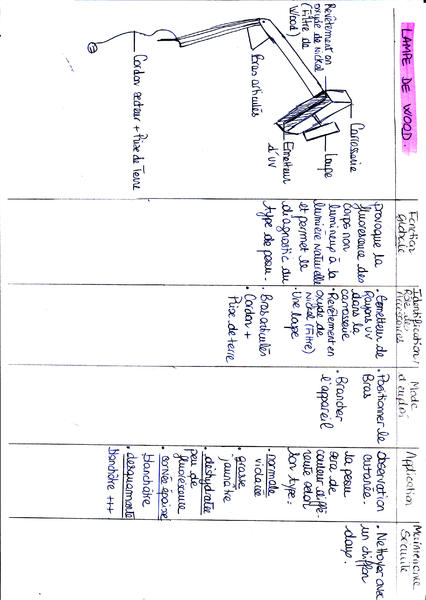 LAMPE DE WOOD.
Revêtement en
oxyde de nickel
(Filtre de
Wood)
Carrosserie
Loupe
Emetteur
d'UV
Bras articulés
Cordon secteur + Prise de Terre
Fonction
Globale
provoque la
fluorescence des
corps non
lumineux à la
lumière naturelle
et permet le
diagnostic du
type de peau.
Identification /
Rôle des
Accessoires
• Emetteur de
Rayons UV
dans la
carrosserie
• Revêtement en
oxyde de
nickel (Filtre)
• Une loupe
• Bras articulés
• Cordon +
Prise de terre
Mode
d'emploi
• Positionner le
Bras
• Brancher
l'appareil
Application
Observation
cutanée.
la peau
sera de
couleur diffé-
rente selon
son type:
• normale
violacée
• grasse
jaunâtre
• deshydratée
peu de
fluorescence
• cornée épaisse
blanchâtre
• desquamante
blanchâtre +++
Maintenance
Sécurité
• Nettoyer avec
un chiffon
doux.